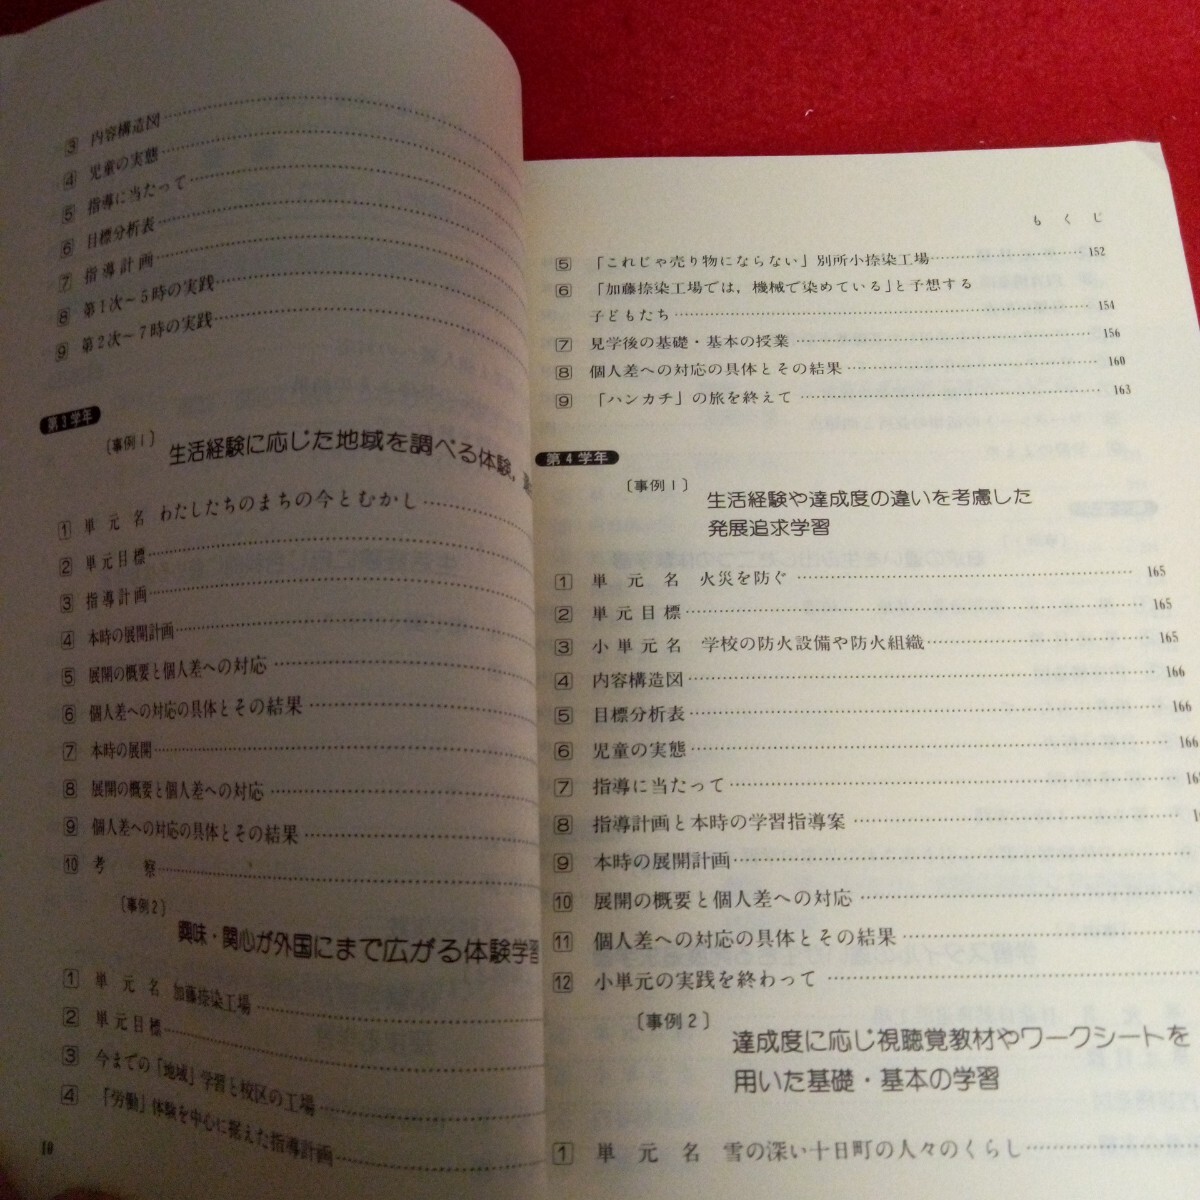 ③ 内容構造図
④ 児童の実態
⑤ 指導に当たって
⑥ 目標分析表
⑦ 指導計画
⑧ 第1次〜5時の実践
⑨ 第2次〜7時の実践
第3学年
〔事例1〕 生活経験に応じた地域を調べる体験,
① 単元名 わたしたちのまちの今とむかし
② 単元目標
③ 指導計画
④ 本時の展開計画
⑤ 展開の概要と個人差への対応
⑥ 個人差への対応の具体とその結果
⑦ 本時の展開
⑧ 展開の概要と個人差への対応
⑨ 個人差への対応の具体とその結果
⑩ 考察
〔事例2〕
興味・関心が外国にまで広がる体験学習
① 単元名 加藤捺染工場
② 単元目標
③ 今までの「地域」学習と校区の工場
④ 「労働」体験を中心に据えた指導計画
10
もくじ
⑤ 「これじゃ売り物にならない」別所小捺染工場 152
⑥ 「加藤捺染工場では，機械で染めている」と予想する
子どもたち 154
⑦ 見学後の基礎・基本の授業 156
⑧ 個人差への対応の具体とその結果 160
⑨ 「ハンカチ」の旅を終えて 163
第4学年
〔事例1〕 生活経験や達成度の違いを考慮した
発展追求学習
① 単元名 火災を防ぐ 165
② 単元目標 165
③ 小単元名 学校の防火設備や防火組織 165
④ 内容構造図 166
⑤ 目標分析表 166
⑥ 児童の実態 166
⑦ 指導に当たって
⑧ 指導計画と本時の学習指導案
⑨ 本時の展開計画
⑩ 展開の概要と個人差への対応
⑪ 個人差への対応の具体とその結果
⑫ 小単元の実践を終わって
〔事例2〕
達成度に応じ視聴覚教材やワークシートを
用いた基礎・基本の学習
① 単元名 雪の深い十日町の人々のくらし